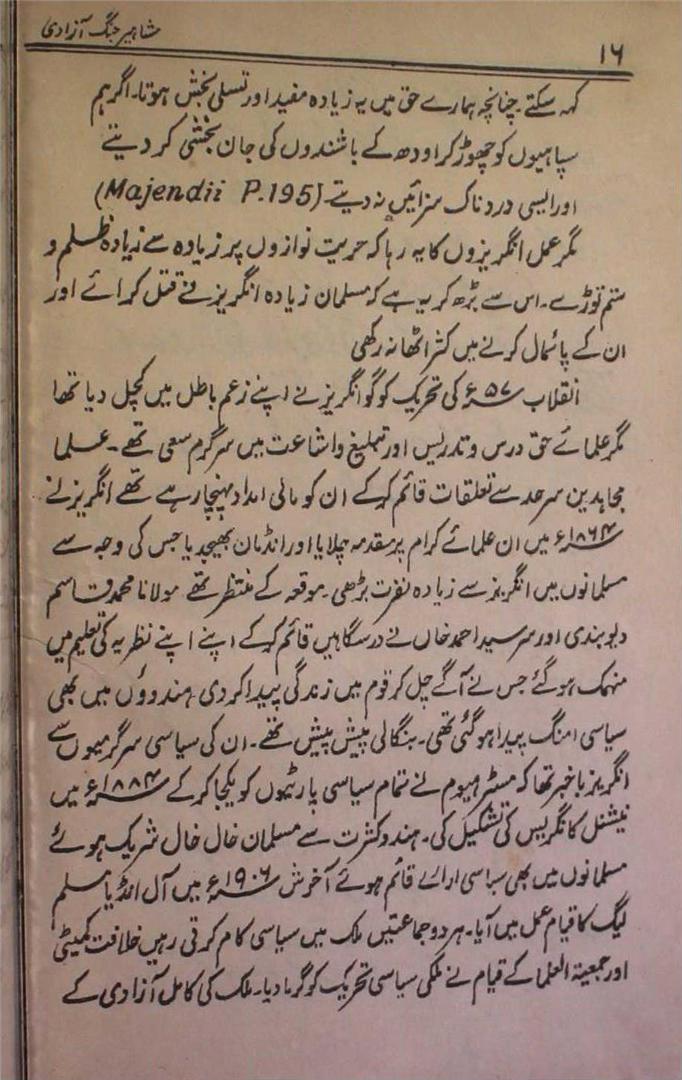 ۱۶
مشاہیر جنگ آزادی
کہہ سکتے۔ چنانچہ ہمارے حق میں یہ زیادہ مفید اور تسلی بخش ہوتا۔ اگر ہم
سپاہیوں کو چھوڑ کر اودھ کے باشندوں کی جان بخشی کر دیتے
اور ایسی دردناک سزائیں نہ دیتے۔ (Majendii P.195)
مگر عمل انگریزوں کا یہ رہا کہ حریت نوازوں پر زیادہ سے زیادہ ظلم و
ستم توڑے۔ اس سے بڑھ کر یہ ہے کہ مسلمان زیادہ انگریز نے قتل کرائے اور
ان کے پائمال کرنے میں کثر اٹھا نہ رکھی
انقلاب ۵۷ء کی تحریک کو گو انگریز نے اپنے زعم باطل میں کچل دیا تھا
مگر علمائے حق درس و تدریس اور تبلیغ و اشاعت میں سرگرم سعی تھے۔ علما
مجاہدین سرحد سے تعلقات قائم کر کے ان کو مالی امداد پہنچا رہے تھے انگریز نے
۱۸۶۴ء میں ان علمائے کرام پر مقدمہ چلایا اور انڈمان بھیجدیا جس کی وجہ سے
مسلمانوں میں انگریز سے زیادہ نفرت بڑھی۔ موقعہ کے منتظر تھے مولانا محمد قاسم
دیوبندی اور سر سید احمد خاں نے درسگاہیں قائم کر کے اپنے اپنے نظریہ کی تعلیم میں
منہمک ہو گئے جس نے آگے چل کر قوم میں زندگی پیدا کر دی۔ ہندوؤں میں بھی
سیاسی امنگ پیدا ہو گئی تھی۔ بنگالی پیش پیش تھے۔ ان کی سیاسی سرگرمیوں سے
انگریز با خبر تھا کہ مسٹر ہیوم نے تمام سیاسی پارٹیوں کو یکجا کر کے ۱۸۸۴ء میں
نیشنل کانگریس کی تشکیل کی۔ ہندو کثرت سے مسلمان خال خال شریک ہوئے
مسلمانوں میں بھی سیاسی ادارے قائم ہوئے آخرش ۱۹۰۶ء میں آل انڈیا مسلم
لیگ کا قیام عمل میں آیا۔ ہر دو جماعتیں ملک میں سیاسی کام کرتی رہیں خلافت کمیٹی
اور جمعیۃ العلما کے قیام نے ملکی سیاسی تحریک کو گرما دیا۔ ملک کی کامل آزادی کے